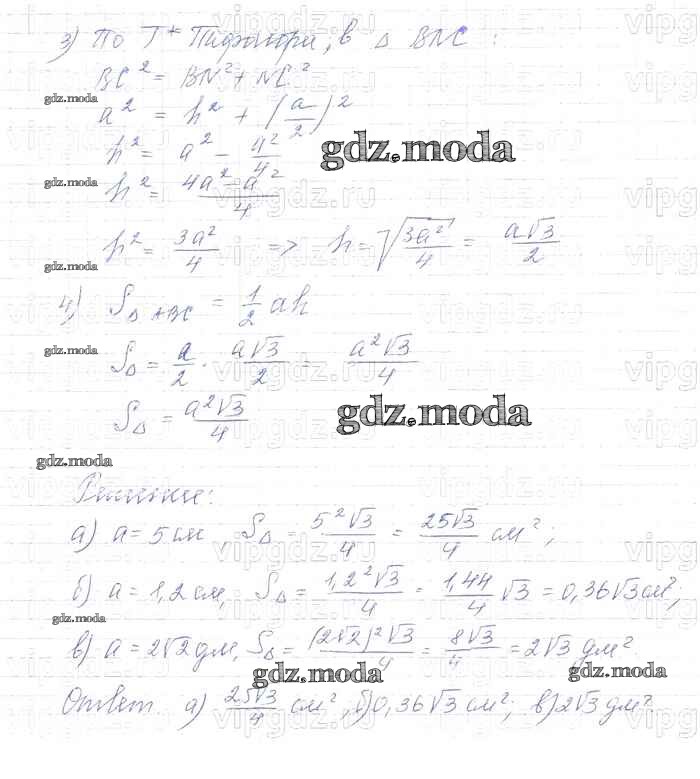 3) По Т* Пифагора, в △ BNC :
BC² = BN² + NC²
gdz.moda
a² = h² + (a/2)²
h² = a² - a²/4
gdz.moda
gdz.moda
h² = (4a² - a²)/4
h² = 3a²/4 => h = √(3a²/4) = a√3/2
gdz.moda
4) S△ABC = 1/2 ah
gdz.moda
S△ = a/2 · a√3/2 = a²√3/4
S△ = a²√3/4
gdz.moda
gdz.moda
Решение:
а) a = 5 см S△ = 5²√3/4 = 25√3/4 см²;
б) a = 1,2 см, S△ = 1,2²√3/4 = 1,44/4 √3 = 0,36√3 см²;
gdz.moda
в) a = 2√2 дм, S△ = (2√2)²√3/4 = 8√3/4 = 2√3 дм².
gdz.moda
gdz.moda
Ответ а) 25√3/4 см², б) 0,36√3 см²; в) 2√3 дм².